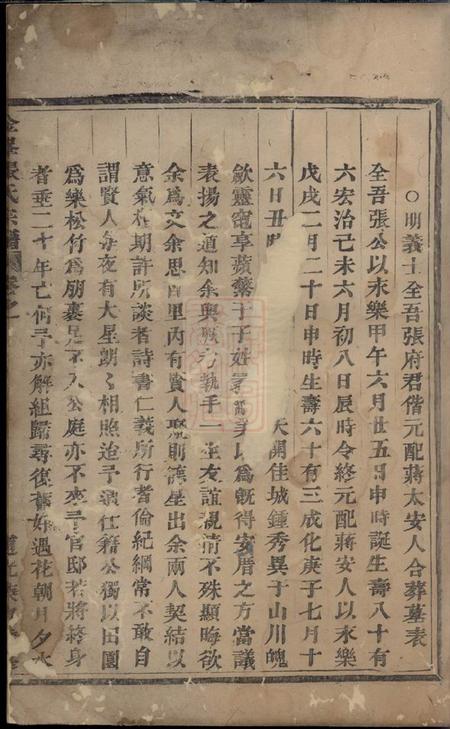 ○明義士全吾張府君偕元配蔣太安人合葬墓表
全吾張公以永樂甲午六月廿五日申時誕生壽八十有
六宏治己未六月初八日辰時令終元配蔣安人以永樂
戊戌二月二十日申時生壽六十有三成化庚子七月十
六日丑時 天開佳城鍾秀異于山川魄
歛靈窀享蘋蘩于子姓 以為既得安厝之方當議
表揚之道知余與 執手一生友誼親清不殊顯晦欲
余為文余思 里內有賢人聚則德星出余兩人契結以
意氣相期許所談者詩書仁義所行者倫紀綱常不敢自
謂賢人每夜有大星朗朗相照迨予濱仕籍公獨以田園
為樂松竹為朋裹足不入公庭亦不來予官邸若將終身
者垂二十年亡何予亦解組歸尋復舊好遇花朝月夕
張氏宗譜 卷之